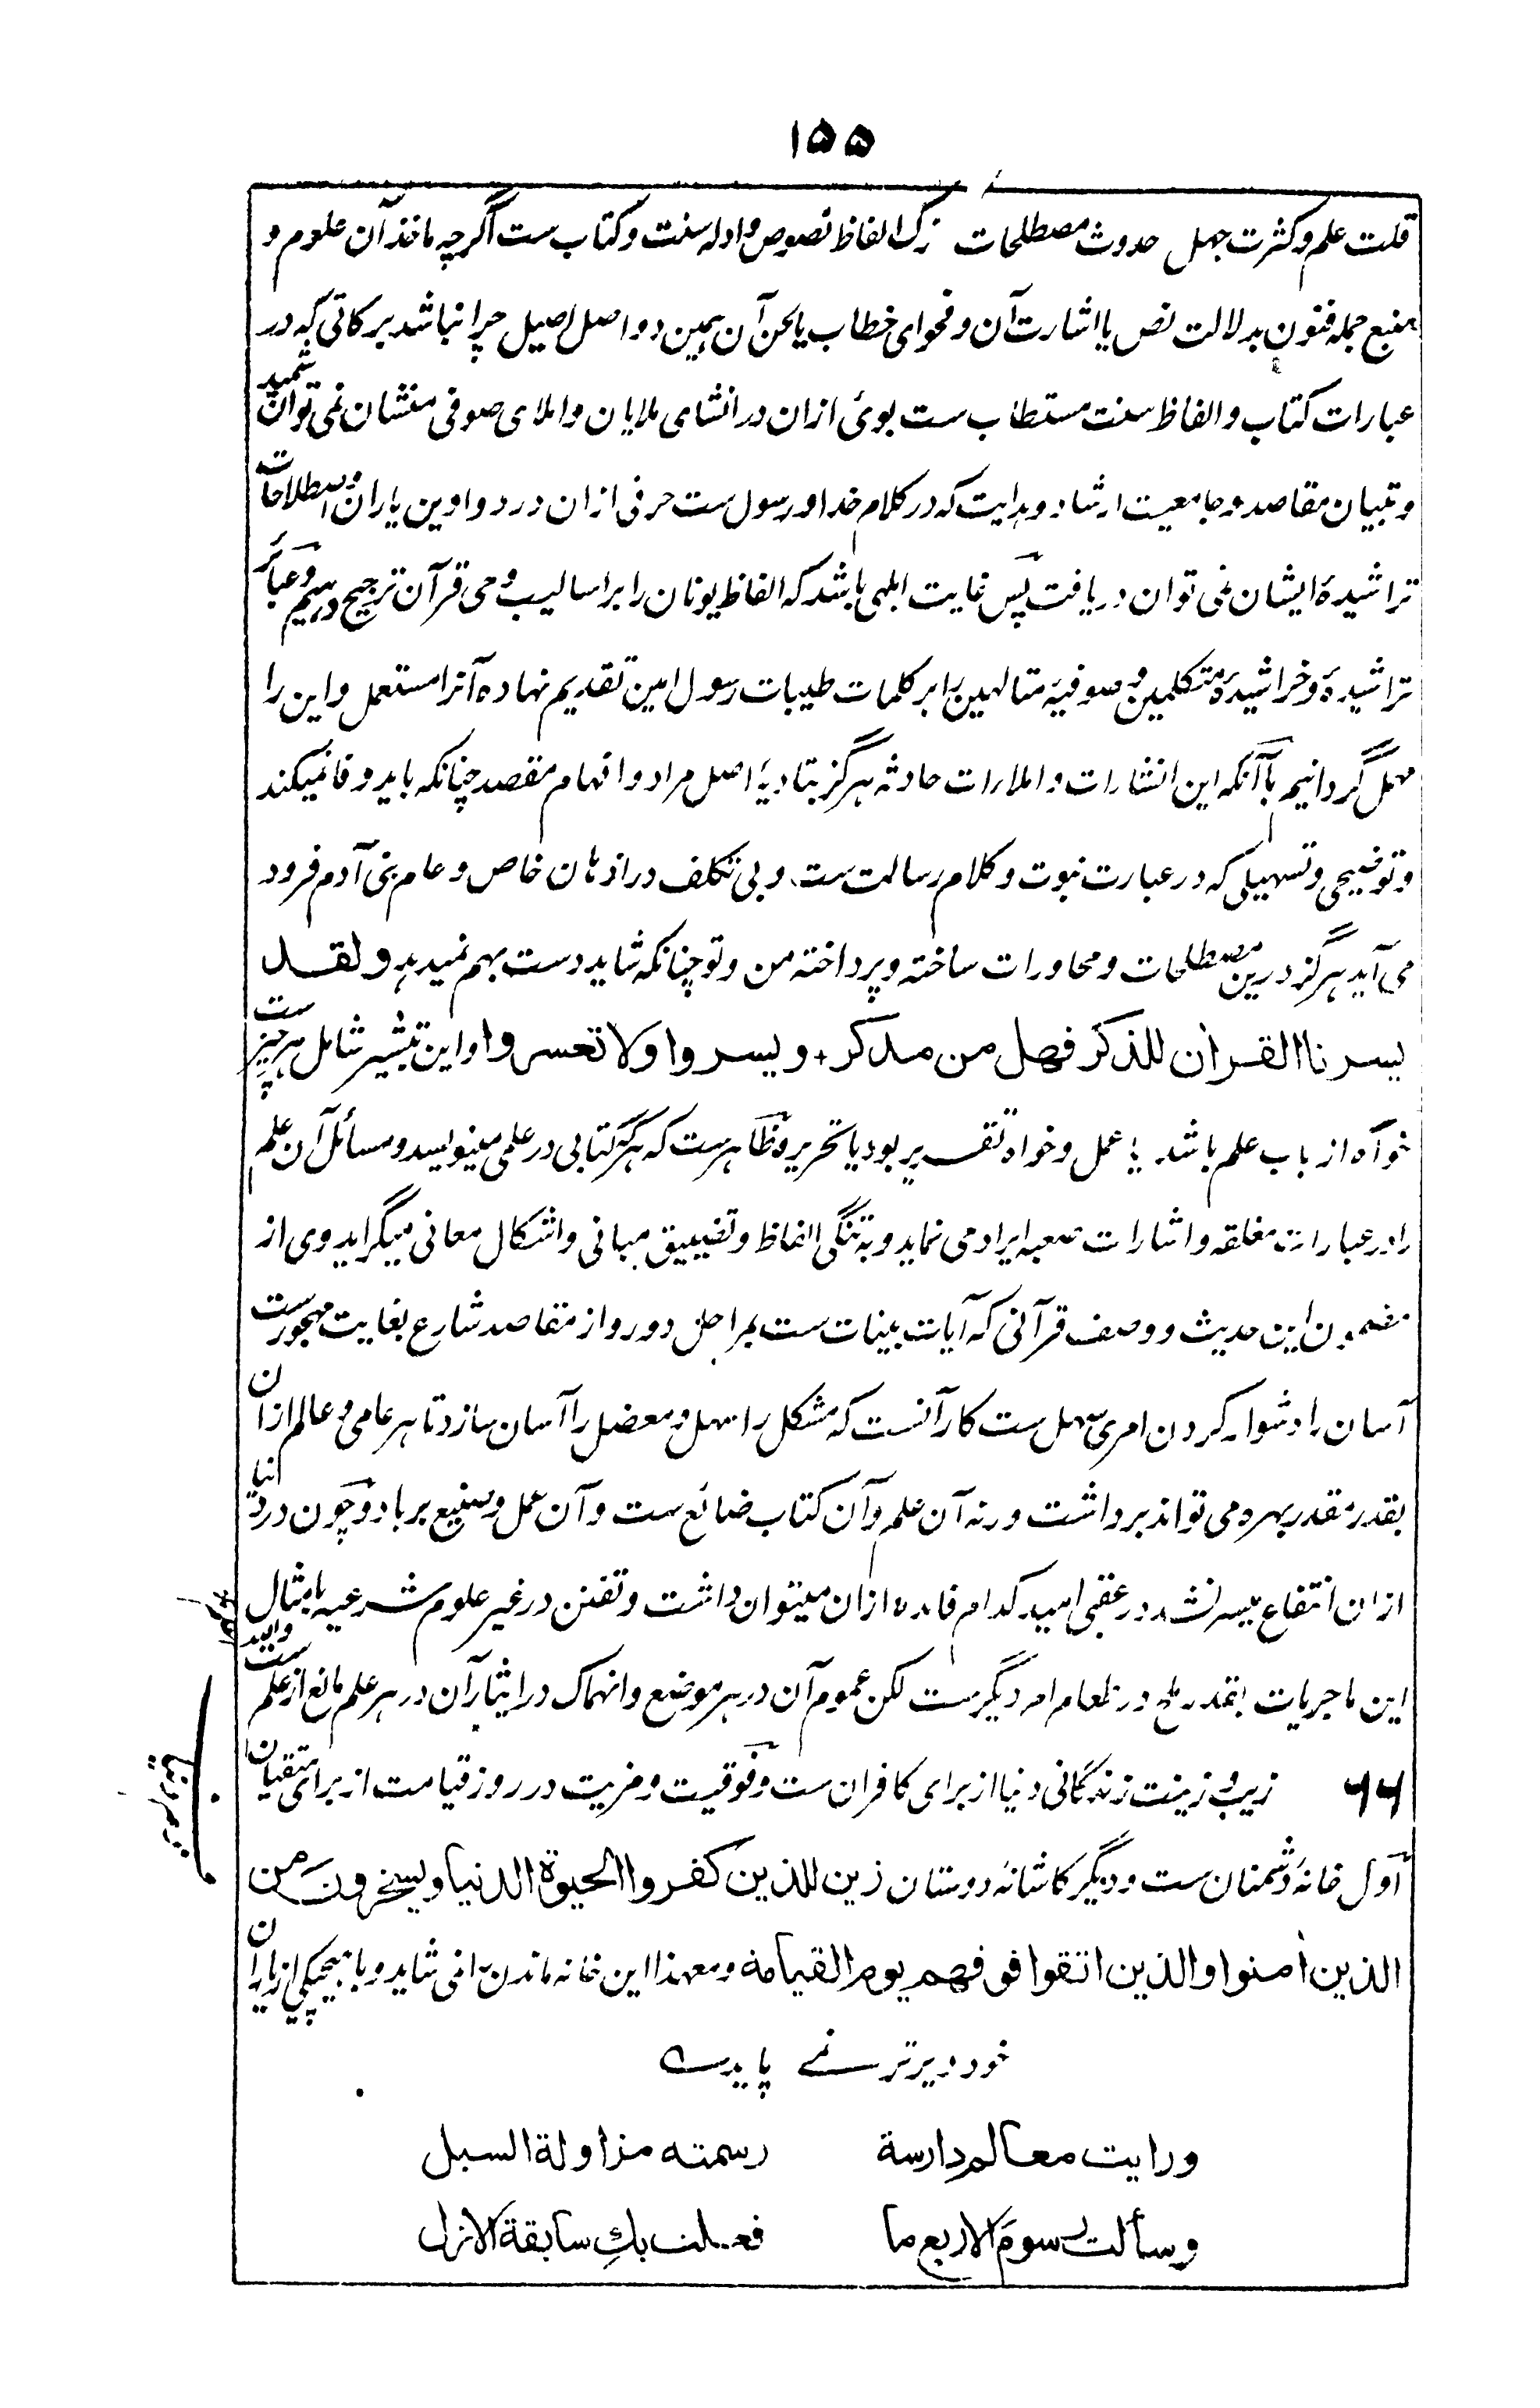 ۱۵۵
قلت علم و کثرت جهل حدوث مصطلحات ترک الفاظ نصوص و ادله سنت و کتاب ست اگرچه ماخذ آن علوم و
منبع جمله فنون بدلالت نص یا اشارت آن و فحوای خطاب یا لحن آن همین دو اصل اصیل چرا نباشد برکاتی که در
عبارات کتاب و الفاظ سنت مستطاب ست بوئ ازان در انشای ملایان و املای صوفی منشان نمی توان شمید
و تبیان مقاصد و جامعیت ارشاد و هدایت که در کلام خدا و رسول ست حرفی ازان در دواوین یاران و اصطلاحات
تراشیدهٔ ایشان نمی توان دریافت پس غایت ابلهی باشد که الفاظ یونان را بر اسالیب وحی قرآن ترجیح دهیم و عبائر
تراشیدهٔ و خراشیدهٔ متکلمین و صوفیهٔ متالهین را بر کلمات طیبات رسول امین تقدیم نهاده آنرا مستعمل و این را
مهمل گردانیم با آنکه این انشارات و املارات حادثه هرگز بتادیهٔ اصل مراد و افهام مقصد چنانکه باید وفا نمیکند
و توضیحی و تسهیلی که در عبارت نبوت و کلام رسالت ست و بی تکلف در اذهان خاص و عام بنی آدم فرود
می آید هرگز درین مصطلحات و محاورات ساخته و پرداخته من و تو چنانکه شاید دست بهم نمیدهد و لقد
یسرنا القران للذکر فهل من مدکر + و یسروا ولا تعسروا و این تیسیر شامل هر چیز ست
خواه از باب علم باشد یا عمل و خواه تقریر بود یا تحریر و ظاهرست که هر که کتابی در علمی مینویسد و مسائل آن علم
را در عبارات مغلقه و اشارات صعبه ایراد می نماید و به تنگی الفاظ و تضییق مبانی و اشکال معانی میگراید وی از
مضمون این حدیث و وصف قرآنی که آیات بینات ست بمراحل دور و از مقاصد شارع بغایت مهجورست
آسان را دشوار کردن امری سهل ست کار آنست که مشکل را سهل و معضل را آسان سازد تا هر عامی و عالم ازان
بقدر مقدر بهره می تواند برداشت ورنه آن علم و آن کتاب ضائع ست و آن عمل و صنیع برباد و چون در دنیا
ازان انتفاع میسر نشد در عقبی امید کدام فائده ازان میتوان داشت و تفنن در غیر علوم شرعیه با مثال
این ماجریات بقدر ملح در طعام امر دیگرست لکن عموم آن در هر موضع و انهماک در ایثار آن در هر علم مانع از علم ست
۶۶ زیب و زینت زندگانی دنیا از برای کافران ست و فوقیت و مزیت در روز قیامت از برای متقیان
اول خانهٔ دشمنان ست و دیگر کاشانهٔ دوستان زین للذین کفروا الحیوة الدنیا و یسخرون من
الذین امنوا و الذین اتقوا فوقهم یوم القیامة و معهذا این خانه ماندن را نمی شاید و با هیچیکی از یاران
خود دیرتر نمے پاید ے
ورایت معالم دارسة رسمته مزاولة السبل
وسألت رسوم الاربع ما فعلت بك سابقة الازل